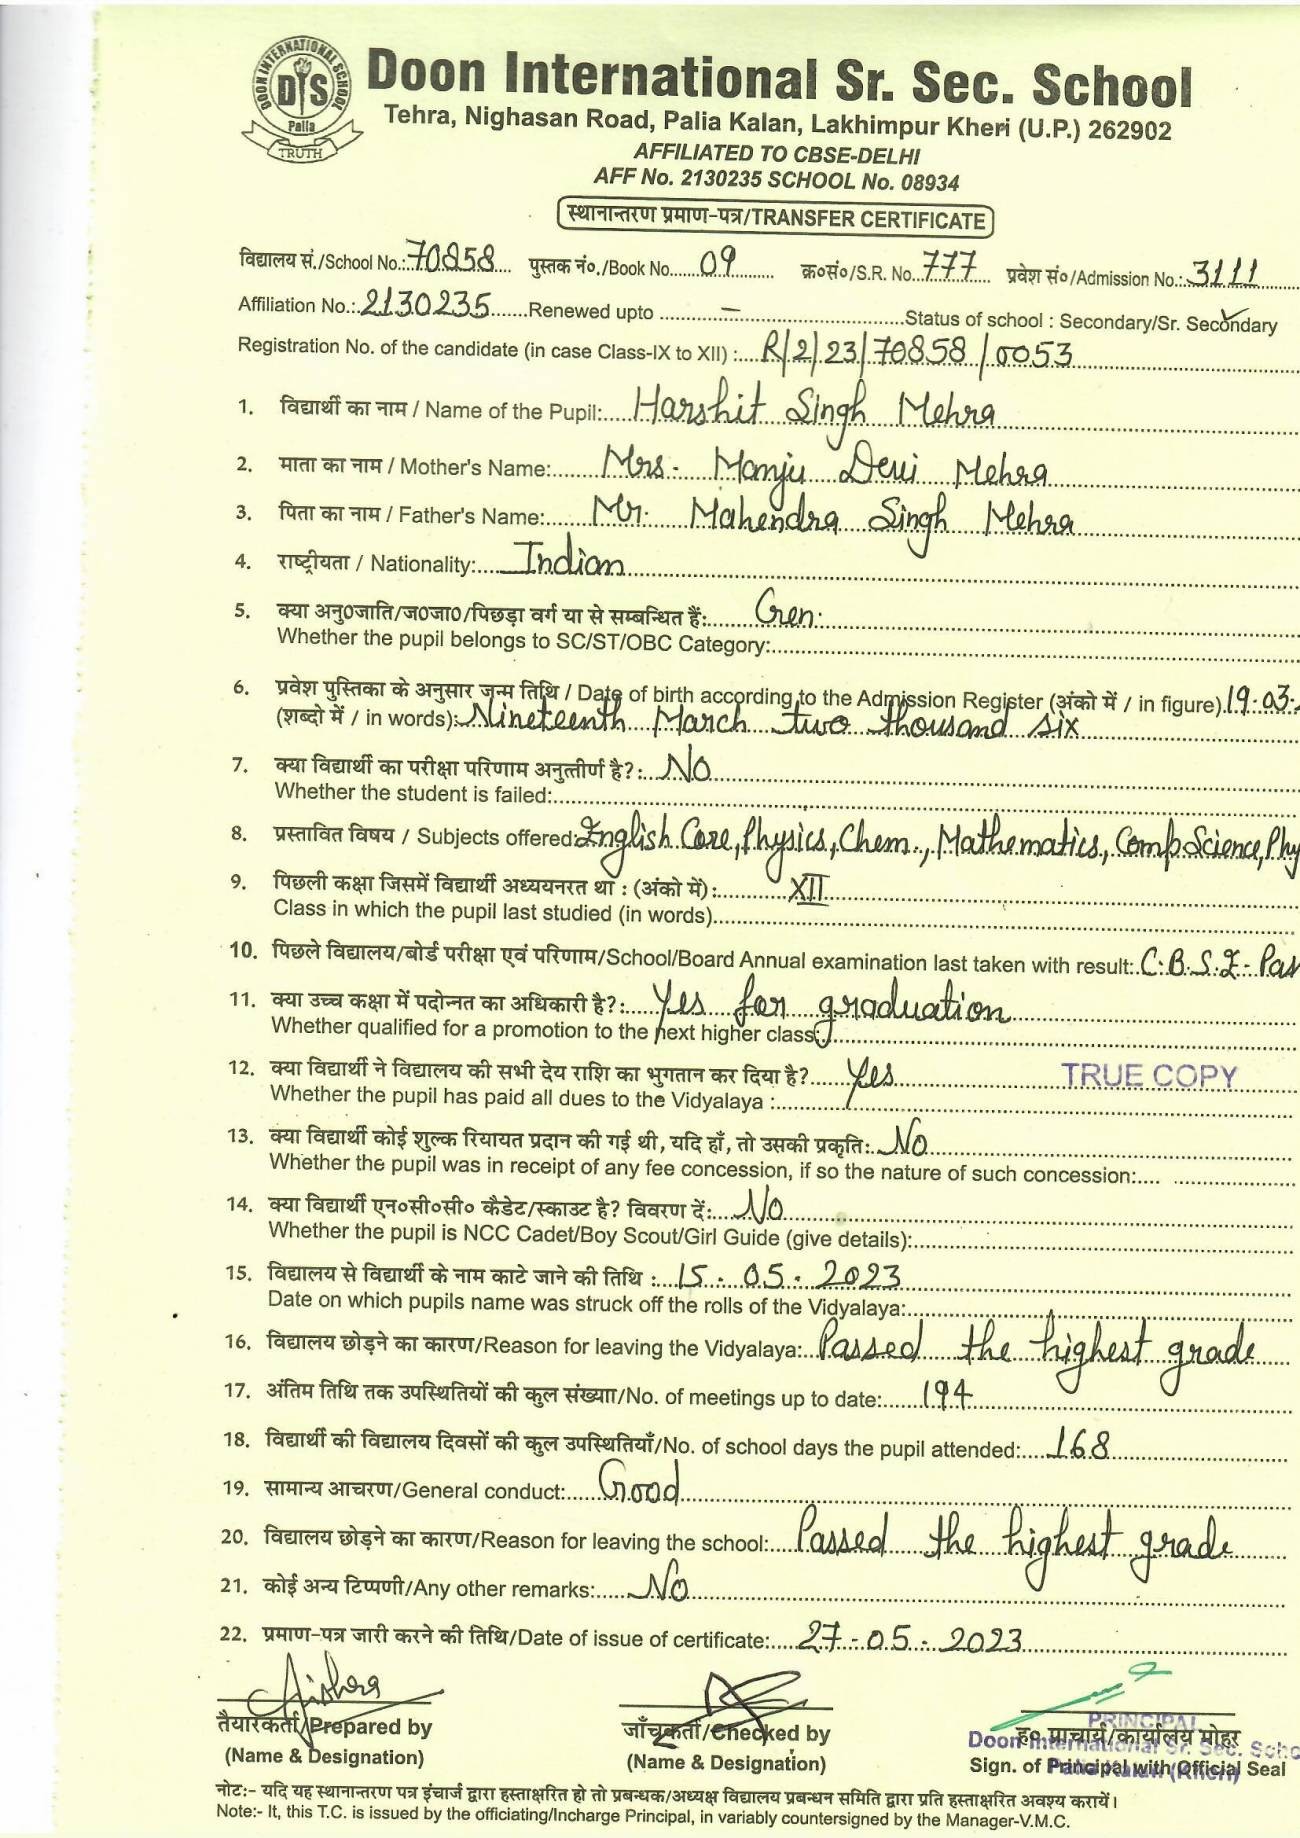 DOON INTERNATIONAL SCHOOL
DIS
Palia
TRUTH
Doon International Sr. Sec. School
Tehra, Nighasan Road, Palia Kalan, Lakhimpur Kheri (U.P.) 262902
AFFILIATED TO CBSE-DELHI
AFF No. 2130235 SCHOOL No. 08934
स्थानान्तरण प्रमाण-पत्र/TRANSFER CERTIFICATE
विद्यालय सं./School No.: 70858 पुस्तक नं०./Book No. 09 क्र०सं०/S.R. No. 777 प्रवेश सं०/Admission No.: 3111
Affiliation No.: 2130235 Renewed upto — Status of school : Secondary/Sr. Secondary
Registration No. of the candidate (in case Class-IX to XII) : R/2/23/70858/0053
1. विद्यार्थी का नाम / Name of the Pupil: Harshit Singh Mehra
2. माता का नाम / Mother's Name: Mrs. Manju Devi Mehra
3. पिता का नाम / Father's Name: Mr. Mahendra Singh Mehra
4. राष्ट्रीयता / Nationality: Indian
5. क्या अनु0जाति/ज0जा0/पिछड़ा वर्ग या से सम्बन्धित हैं: Gen.
Whether the pupil belongs to SC/ST/OBC Category:
6. प्रवेश पुस्तिका के अनुसार जन्म तिथि / Date of birth according to the Admission Register (अंको में / in figure) 19.03.
(शब्दो में / in words): Nineteenth March two thousand six
7. क्या विद्यार्थी का परीक्षा परिणाम अनुत्तीर्ण है?: No
Whether the student is failed:
8. प्रस्तावित विषय / Subjects offered: English Core, Physics, Chem., Mathematics, Comp Science, Phy
9. पिछली कक्षा जिसमें विद्यार्थी अध्ययनरत था : (अंको में): XII
Class in which the pupil last studied (in words)
10. पिछले विद्यालय/बोर्ड परीक्षा एवं परिणाम/School/Board Annual examination last taken with result: C.B.S.E - Pas
11. क्या उच्च कक्षा में पदोन्नत का अधिकारी है?: Yes for graduation
Whether qualified for a promotion to the next higher class:
12. क्या विद्यार्थी ने विद्यालय की सभी देय राशि का भुगतान कर दिया है? Yes TRUE COPY
Whether the pupil has paid all dues to the Vidyalaya :
13. क्या विद्यार्थी कोई शुल्क रियायत प्रदान की गई थी, यदि हाँ, तो उसकी प्रकृति: No
Whether the pupil was in receipt of any fee concession, if so the nature of such concession:
14. क्या विद्यार्थी एन०सी०सी० कैडेट/स्काउट है? विवरण दें: No
Whether the pupil is NCC Cadet/Boy Scout/Girl Guide (give details):
15. विद्यालय से विद्यार्थी के नाम काटे जाने की तिथि : 15.05.2023
Date on which pupils name was struck off the rolls of the Vidyalaya:
16. विद्यालय छोड़ने का कारण/Reason for leaving the Vidyalaya: Passed the highest grade
17. अंतिम तिथि तक उपस्थितियों की कुल संख्या/No. of meetings up to date: 194
18. विद्यार्थी की विद्यालय दिवसों की कुल उपस्थितियाँ/No. of school days the pupil attended: 168
19. सामान्य आचरण/General conduct: Good
20. विद्यालय छोड़ने का कारण/Reason for leaving the school: Passed the highest grade
21. कोई अन्य टिप्पणी/Any other remarks: No
22. प्रमाण-पत्र जारी करने की तिथि/Date of issue of certificate: 27.05.2023
तैयारकर्ता/Prepared by
(Name & Designation)
जाँचकर्ता/Checked by
(Name & Designation)
PRINCIPAL
Doon International Sr. Sec. Scho
ह० प्राचार्य/कार्यालय मोहर
Sign. of Principal with Official Seal
नोट:- यदि यह स्थानान्तरण पत्र इंचार्ज द्वारा हस्ताक्षरित हो तो प्रबन्धक/अध्यक्ष विद्यालय प्रबन्धन समिति द्वारा प्रति हस्ताक्षरित अवश्य करायें।
Note:- It, this T.C. is issued by the officiating/Incharge Principal, in variably countersigned by the Manager-V.M.C.